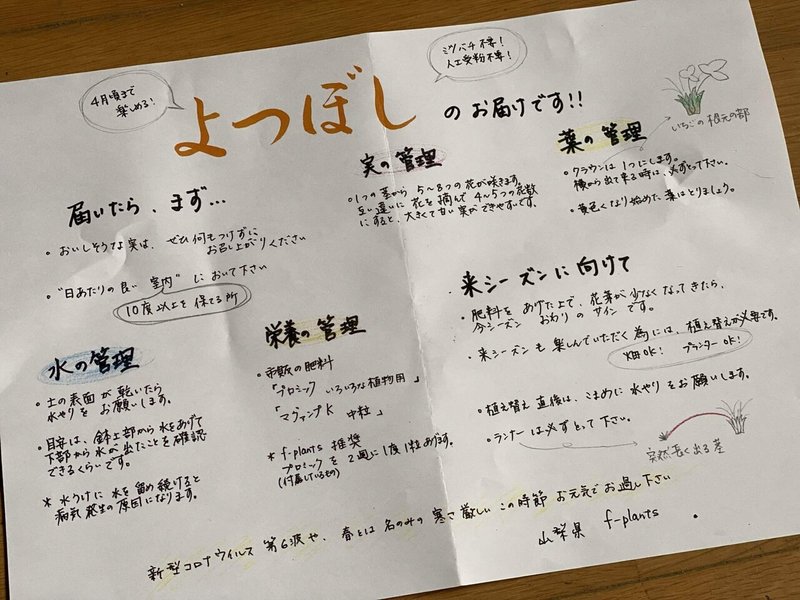 4月頃まで
楽しめる!
ミツバチ不要!
人工受粉不要!
よつぼし のお届けです!!
届いたら、まず…
・おいしそうな実は、ぜひ何もつけずに
お召し上がりください
・"日あたりの良い 室内" において下さい
10度以上を保てる所
実の管理
・1つの茎から 5〜8つの花が咲きます。
互い違いに 花を摘んで 4〜5つの花数
にすると、大きくて甘い実ができやすいです。
葉の管理
いちごの根元の部
・クラウンは 1つにします。
横から出て来る時は、必ずとって下さい。
・黄色くなり始めた葉はとりましょう。
水の管理
・土の表面が乾いたら
水やりを お願いします。
・目安は、鉢上部から水をあげて
下部から水が出たことを確認
できるくらいです。
* 水うけに 水を留め続けると
病気発生の原因になります。
栄養の管理
・市販の肥料
「プロミック いろいろな植物用」
「マグァンプK 中粒」
* f-plants 推奨
プロミックを 2週に1度1粒あげます。
(付属しているもの)
来シーズンに向けて
・肥料をあげた上で、花芽が少なくなってきたら、
今シーズン おわりの サインです。
・来シーズンも 楽しんでいただく為には、植え替えが必要です。
畑OK! プランターOK!
・植え替え直後は、こまめに 水やり をお願いします。
・ランナーは必ずとって下さい。
突然長く出る茎
新型コロナウイルス 第6波や、春とは名のみの 寒さ厳しい この時節 お元気で お過し下さい
山梨県 f-plants